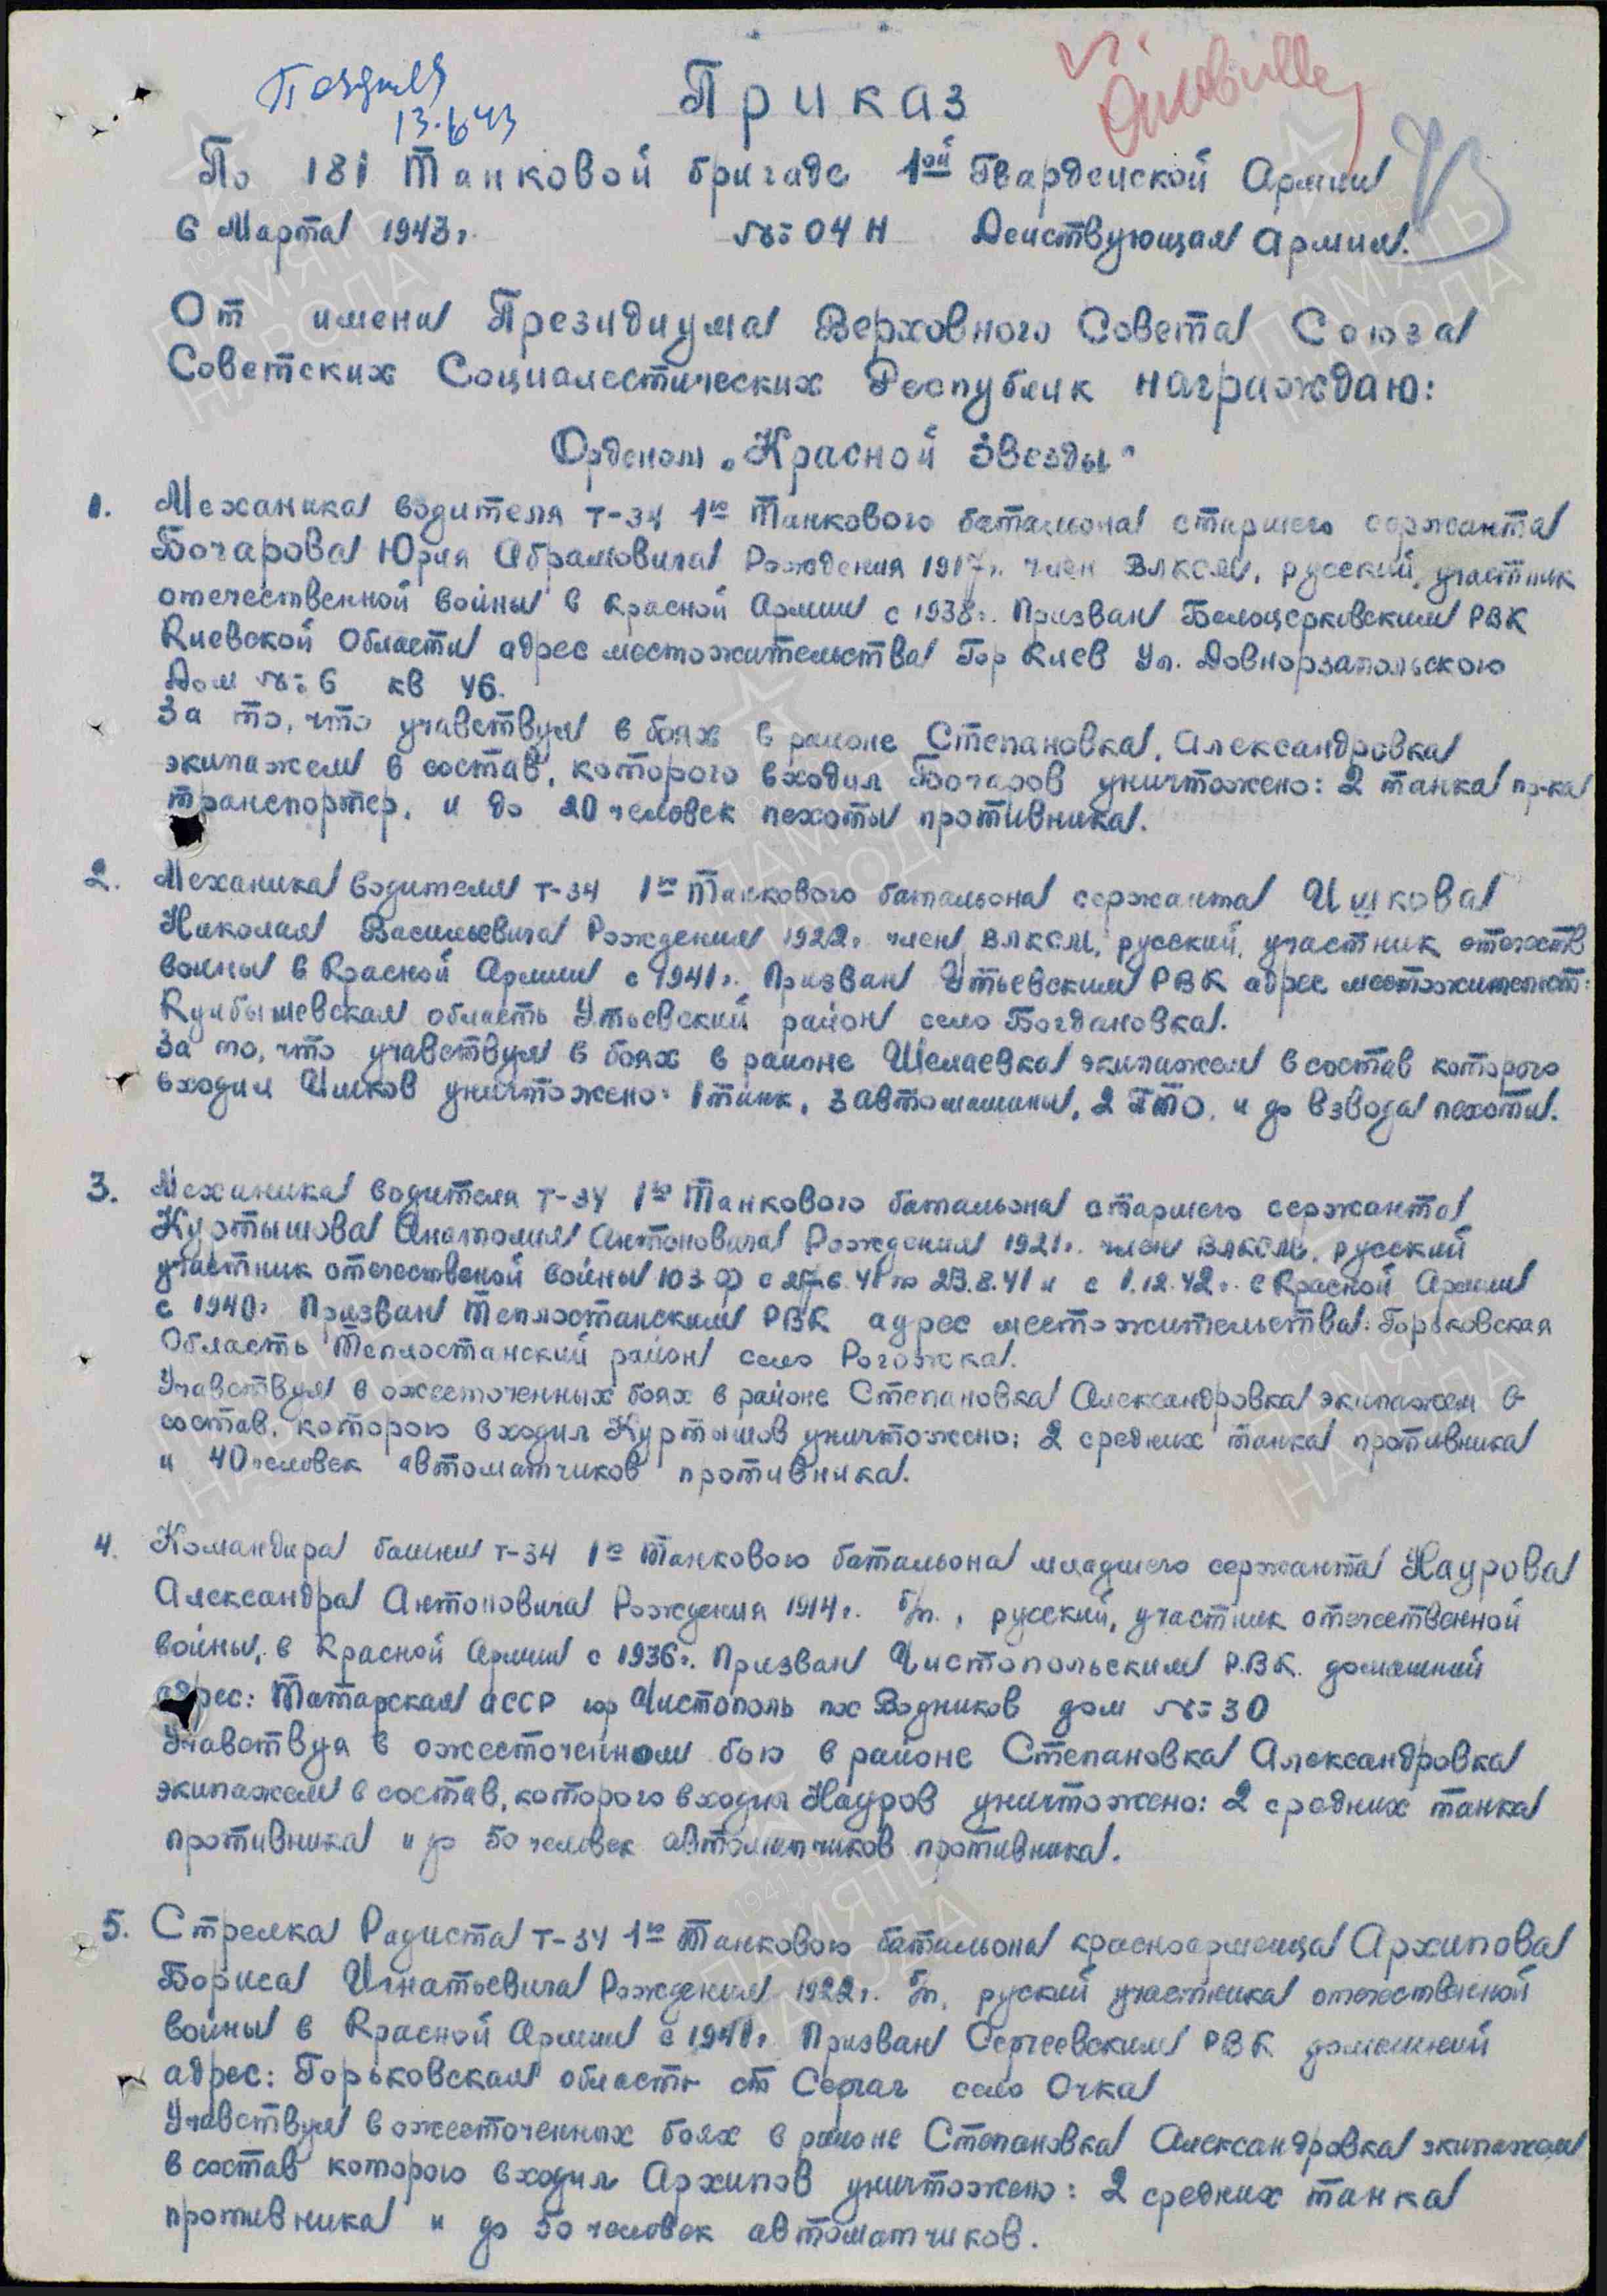 13.6.43
Приказ
По 181 Танковой бригаде 1ой Гвардейской Армии
6 Марта 1943г. №04 Н Действующая Армия.
От имени Президиума Верховного Совета Союза
Советских Социалистических Республик награждаю:
Орденом „Красной Звезды"
1. Механика водителя Т-34 1го Танкового батальона старшего сержанта
Бочарова Юрия Абрамовича Рождения 1917г. член ВЛКСМ, русский, участник
отечественной войны в Красной Армии с 1938г. Призван Белоцерковским РВК
Киевской Области адрес местожительства Гор Киев Ул. Довнорзапольского
Дом № 6 кв 46.
За то, что учавствуя в боях в районе Степановка, Александровка
экипажем в состав, которого входил Бочаров уничтожено: 2 танка пр-ка
транспортер, и до 20 человек пехоты противника.
2. Механика водителя Т-34 1го Танкового батальона сержанта Чшкова
Николая Васильевича Рождения 1922г. член ВЛКСМ, русский, участник отечеств
войны в Красной Армии с 1941г. Призван Утьевским РВК адрес местожительст:
Куйбышевская область Утьевский район село Богдановка.
За то, что учавствуя в боях в районе Шелаевка экипажем в состав которого
входил уничтожено: 1 танк, 3 автомашины, 2 ПТО, и до взвода пехоты.
3. Механика водителя Т-34 1го Танкового батальона старшего сержанта
Куртышова Анатолия Антоновича Рождения 1921г. член ВЛКСМ, русский
участник отечественой войны ЮЗФ с 27.6.41 по 23.8.41 и с 1.12.42г. в Красной Армии
с 1940г. Призван Теплостанским РВК адрес местожительства: Горьковская
Область Теплостанский район село Рогожка.
Учавствуя в ожесточенных боях в районе Степановка Александровка экипажем в
состав, которого входил Куртышов уничтожено: 2 средних танка противника
и 40 человек автоматчиков противника.
4. Командира башни Т-34 1го Танкового батальона младшего сержанта Наурова
Александра Антоновича Рождения 1914г. б/п., русский, участник отечественной
войны, в Красной Армии с 1936г. Призван Чистопольским Р.В.К. домашний
адрес: Татарская АССР гор Чистополь пос Водников дом № 30
Учавствуя в ожесточенном бою в районе Степановка Александровка
экипажем в состав, которого входил Науров уничтожено: 2 средних танка
противника и до 50 человек автоматчиков противника.
5. Стрелка Радиста Т-34 1го Танкового батальона красноармейца Архипова
Бориса Игнатьевича Рождения 1922г. б/п, руский участника отечественной
войны в Красной Армии с 1941г. Призван Сергеевским РВК домашний
адрес: Горьковская область ст Сергач село Очка
Учавствуя в ожесточенных боях в районе Степановка Александровка экипажем
в состав которого входил Архипов уничтожено: 2 средних танка
противника и до 50 человек автоматчиков.
ПАМЯТЬ НАРОДА